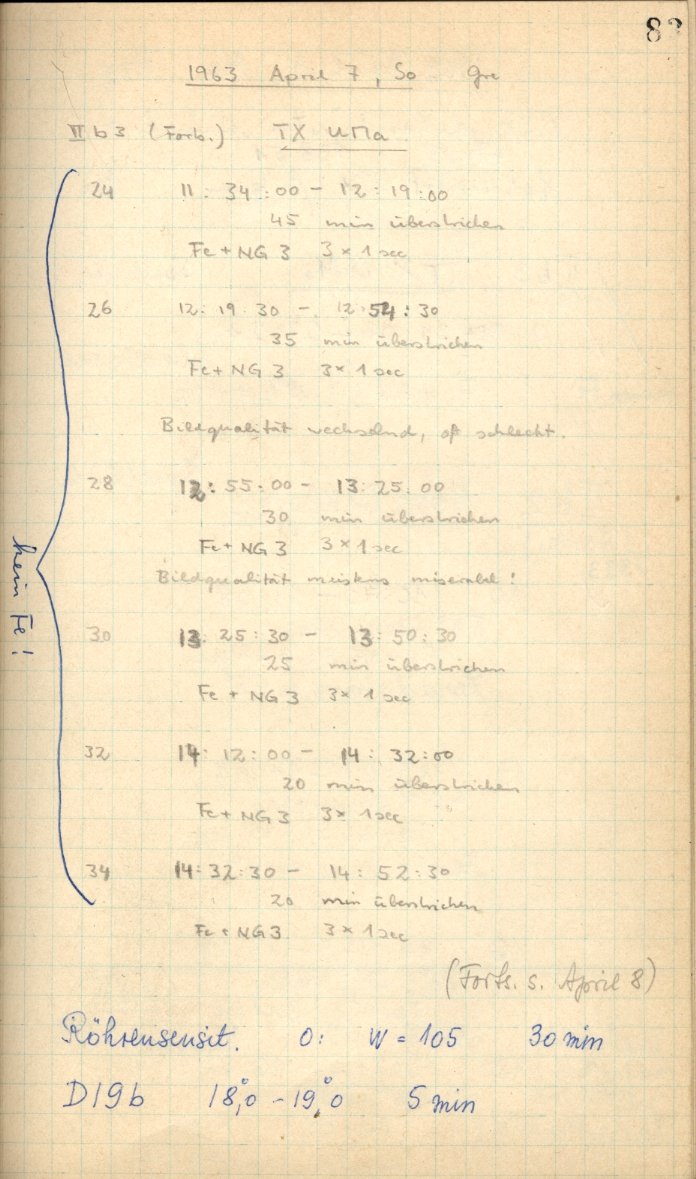 1963 April 7, So Gre
VI b 3 (Forb.) TX UMa
24 11 : 34 : 00 - 12 : 19 : 00
45 min überstrichen
Fe + NG 3 3 × 1 sec
26 12 : 19 : 30 - 12 : 54 : 30
35 min überstrichen
Fe + NG 3 3 × 1 sec
Bildqualität wechselnd, oft schlecht.
28 12 : 55 : 00 - 13 : 25 : 00
30 min überstrichen
Fe + NG 3 3 × 1 sec
Bildqualität meistens miserabel !
kein Fe !
30 13 : 25 : 30 - 13 : 50 : 30
25 min überstrichen
Fe + NG 3 3 × 1 sec
32 14 : 12 : 00 - 14 : 32 : 00
20 min überstrichen
Fe + NG 3 3 × 1 sec
34 14 : 32 : 30 - 14 : 52 : 30
20 min überstrichen
Fe + NG 3 3 × 1 sec
(Forts. s. April 8)
Röhrensensit. 0 : W = 105 30 min
D19b 18°,0 - 19°,0 5 min